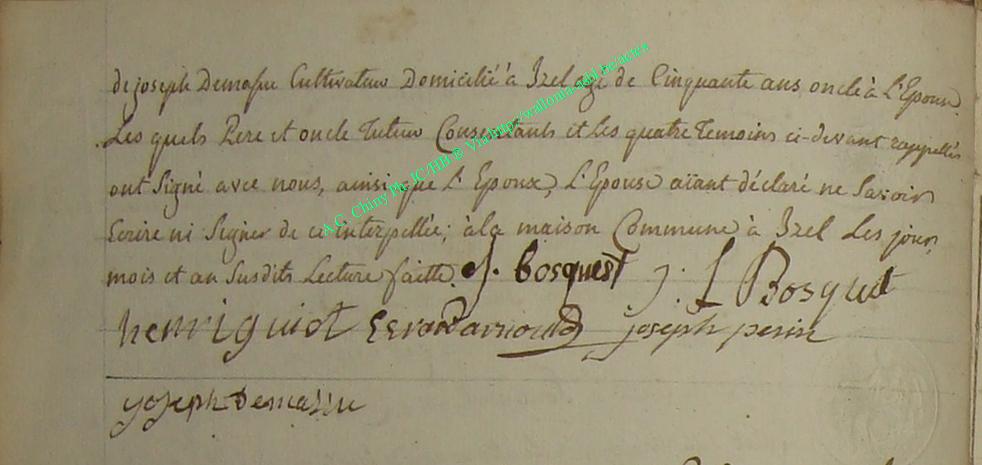 de joseph Demasue Cultivateur Domicilié à Izel agé de Cinquante ans oncle à L'Epouse
Les quels Pere et oncle Tuteur Consentants et Les quatre Temoins ci-devant rappellés
ont Signé avec nous, ainsi que L'Epoux, L'Epouse aïant déclaré ne Savoir
Ecrire ni Signer de ce interpellée; à la maison Commune à Izel Les jour,
mois et an Susdits Lecture faitte. J. bosquet j. L Bosquet
henri guiot joseph perin
joseph Demasue
A.C. Chiny Ph. JC/HB ® Via http://wallonia-asbl.be/actes